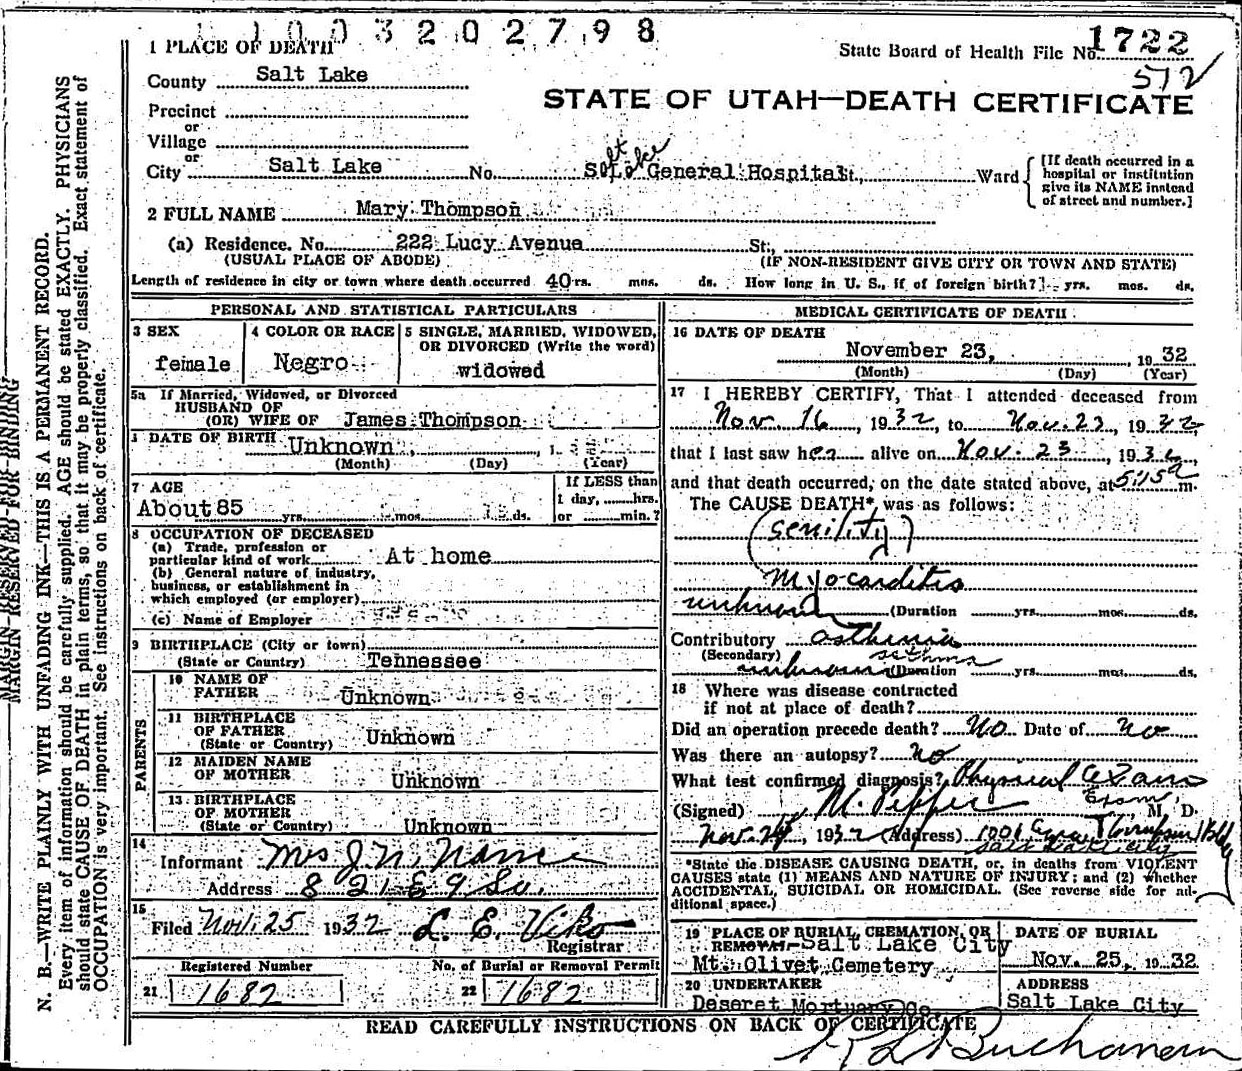 1003202798
1 PLACE OF DEATH
State Board of Health File No. 1722
512
County Salt Lake
STATE OF UTAH—DEATH CERTIFICATE
Precinct
or
Village
or
City Salt Lake No. Salt Lake General Hospital St., Ward
[If death occurred in a
hospital or institution
give its NAME instead
of street and number.]
2 FULL NAME Mary Thompson
(a) Residence. No. 222 Lucy Avenue St.,
(USUAL PLACE OF ABODE) (IF NON-RESIDENT GIVE CITY OR TOWN AND STATE)
Length of residence in city or town where death occurred 40 rs. mos. ds. How long in U. S., if of foreign birth? yrs. mos. ds.
PERSONAL AND STATISTICAL PARTICULARS
3 SEX
female
4 COLOR OR RACE
Negro
5 SINGLE, MARRIED, WIDOWED,
OR DIVORCED (Write the word)
widowed
5a If Married, Widowed, or Divorced
HUSBAND OF
(OR) WIFE OF James Thompson
DATE OF BIRTH Unknown, 1
(Month) (Day) (Year)
7 AGE
About 85 yrs. mos. ds.
If LESS than
1 day, hrs.
or min.?
8 OCCUPATION OF DECEASED
(a) Trade, profession or
particular kind of work At home
(b) General nature of industry,
business, or establishment in
which employed (or employer)
(c) Name of Employer
9 BIRTHPLACE (City or town)
(State or Country) Tennessee
PARENTS
10 NAME OF
FATHER Unknown
11 BIRTHPLACE
OF FATHER
(State or Country) Unknown
12 MAIDEN NAME
OF MOTHER Unknown
13 BIRTHPLACE
OF MOTHER
(State or Country) Unknown
14
Informant Mrs J. N. Nance
Address 821 E 9 So.
15
Filed Nov. 25 1932 L. E. Viko
Registrar
Registered Number No. of Burial or Removal Permit
21 1682 22 1682
MEDICAL CERTIFICATE OF DEATH
16 DATE OF DEATH
November 23, 1932
(Month) (Day) (Year)
17 I HEREBY CERTIFY, That I attended deceased from
Nov. 16, 1932, to Nov. 23, 1932,
that I last saw her alive on Nov. 23, 1932,
and that death occurred, on the date stated above, at 5:15a m.
The CAUSE DEATH* was as follows:
(Senility)
Myocarditis
unknown (Duration yrs. mos. ds.
Contributory asthenia
(Secondary) asthma
unknown (Duration yrs. mos. ds.
18 Where was disease contracted
if not at place of death?
Did an operation precede death? No Date of no
Was there an autopsy? no
What test confirmed diagnosis? Physical Exam
Exam
(Signed) M. Pepper M. D.
Nov. 24, 1932 (Address) 1001 Thompson Bldg
Salt Lake City
*State the DISEASE CAUSING DEATH, or, in deaths from VIOLENT
CAUSES state (1) MEANS AND NATURE OF INJURY; and (2) whether
ACCIDENTAL, SUICIDAL OR HOMICIDAL. (See reverse side for ad-
ditional space.)
19 PLACE OF BURIAL, CREMATION, OR
REMOVAL Salt Lake City
Mt. Olivet Cemetery
DATE OF BURIAL
Nov. 25, 1932
20 UNDERTAKER
Deseret Mortuary Co
ADDRESS
Salt Lake City
READ CAREFULLY INSTRUCTIONS ON BACK OF CERTIFICATE
Buchanan
MARGIN RESERVED FOR BINDING
MARGIN RESERVED FOR BINDING
N. B.—WRITE PLAINLY WITH UNFADING INK—THIS IS A PERMANENT RECORD.
Every item of information should be carefully supplied. AGE should be stated EXACTLY. PHYSICIANS
should state CAUSE OF DEATH in plain terms, so that it may be properly classified. Exact statement of
OCCUPATION is very important. See instructions on back of certificate.